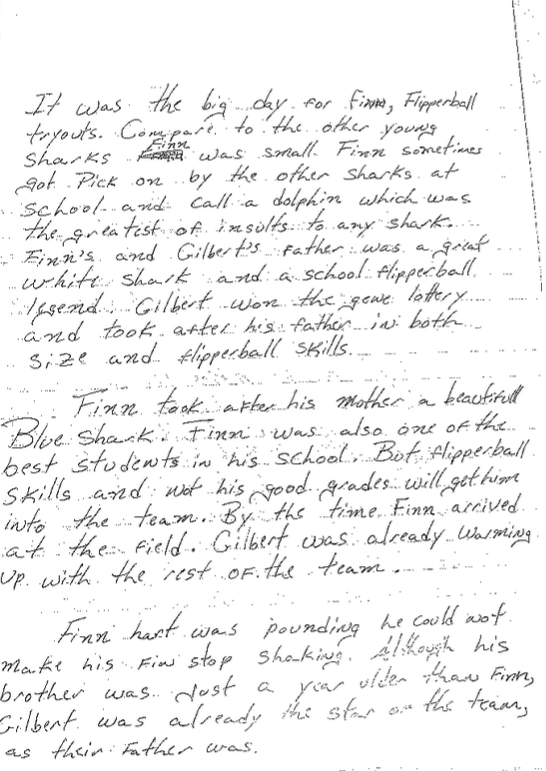 It was the big day for Finn, Flipperball
tryouts. Compare to the other young
Sharks Finn was small. Finn sometimes
got Pick on by the other sharks at
school and call a dolphin which was
the greatest of insults to any shark.
Finn's and Gilbert's Father was a great
white shark and a school flipperball
legend. Gilbert won the gene lottery
and took after his father in both
size and flipperball skills.
Finn took after his mother a beautifull
Blue Shark. Finn was also one of the
best students in his school. But flipperball
skills and not his good grades will get him
into the team. By the time Finn arrived
at the field. Gilbert was already warming
up with the rest of the team.
Finn hart was pounding he could not
make his Fin stop shaking. Although his
brother was Just a year older than Finn,
Gilbert was already the star on the team,
as their Father was.